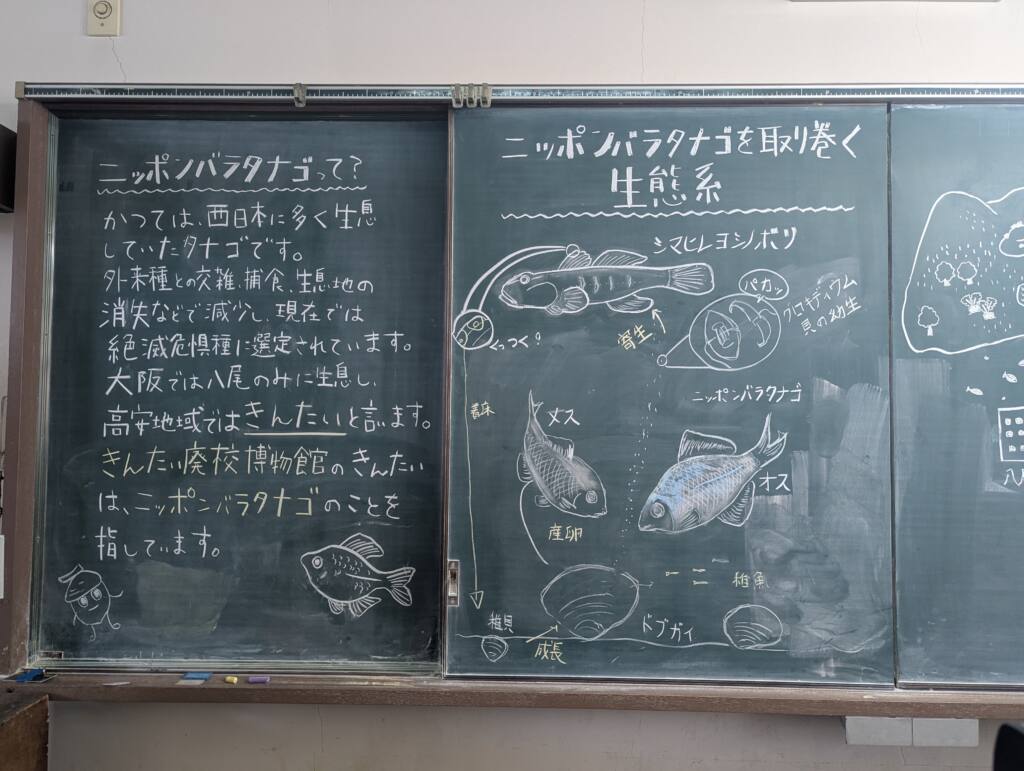 ニッポンバラタナゴって?
かつては、西日本に多く生息
していたタナゴです。
外来種との交雑、捕食、生息地の
消失などで減少し、現在では
絶滅危惧種に選定されています。
大阪では八尾のみに生息し、
高安地域ではきんたいと言います。
きんたい廃校博物館のきんたい
は、ニッポンバラタナゴのことを
指しています。
ニッポンバラタナゴを取り巻く
生態系
シマヒレヨシノボリ
パカッ
グロキディウム
貝の幼生
寄生
くっつく?
ニッポンバラタナゴ
着床
メス
オス
産卵
稚魚
稚貝
ドブガイ
成長
八